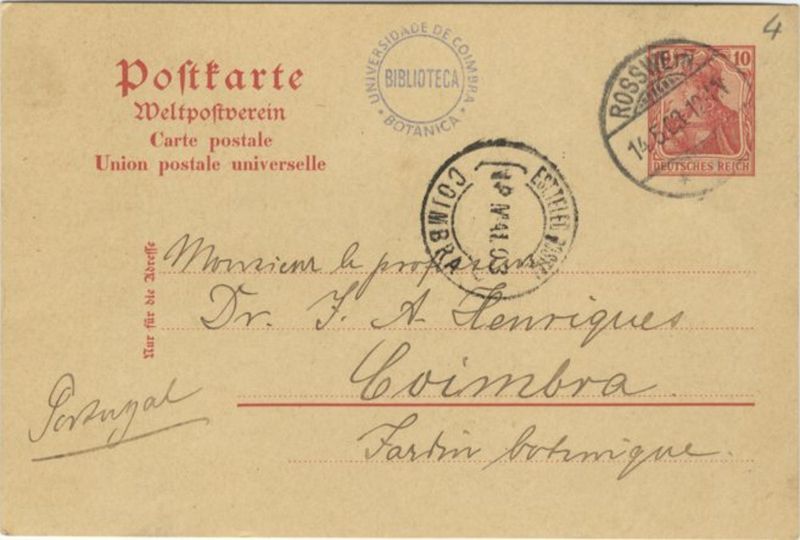 4
Postkarte
Weltpostverein
Carte postale
Union postale universelle
UNIVERSIDADE DE COIMBRA
BIBLIOTECA
BOTANICA
ROSSWEIN
14.5.03
10
DEUTSCHES REICH
COIMBRA
03
Nur für die Adresse
Monsieur le professeur
Dr. J. A. Henriques
Coimbra.
Portugal
Jardin botanique.